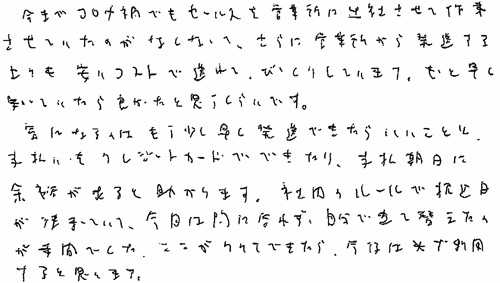 今までコロナ禍でもセールスを営業所に出社させて作業
させていたのがなくなって、さらに営業所から発送する
よりも安いコストで送れて、びっくりしています。もっと早く
聞いていたら良かったと思うくらいです。
気になるのはもう少し早く発送できたらいいことと、
支払いもクレジットカードでできたり、支払期日に
余裕が出ると助かります。社内のルールで振込日
が決まっていて、今回は間に合わず、自分で立て替えたの
が手間でした。ここがクリアできたら、今後は必ず利用
すると思います。